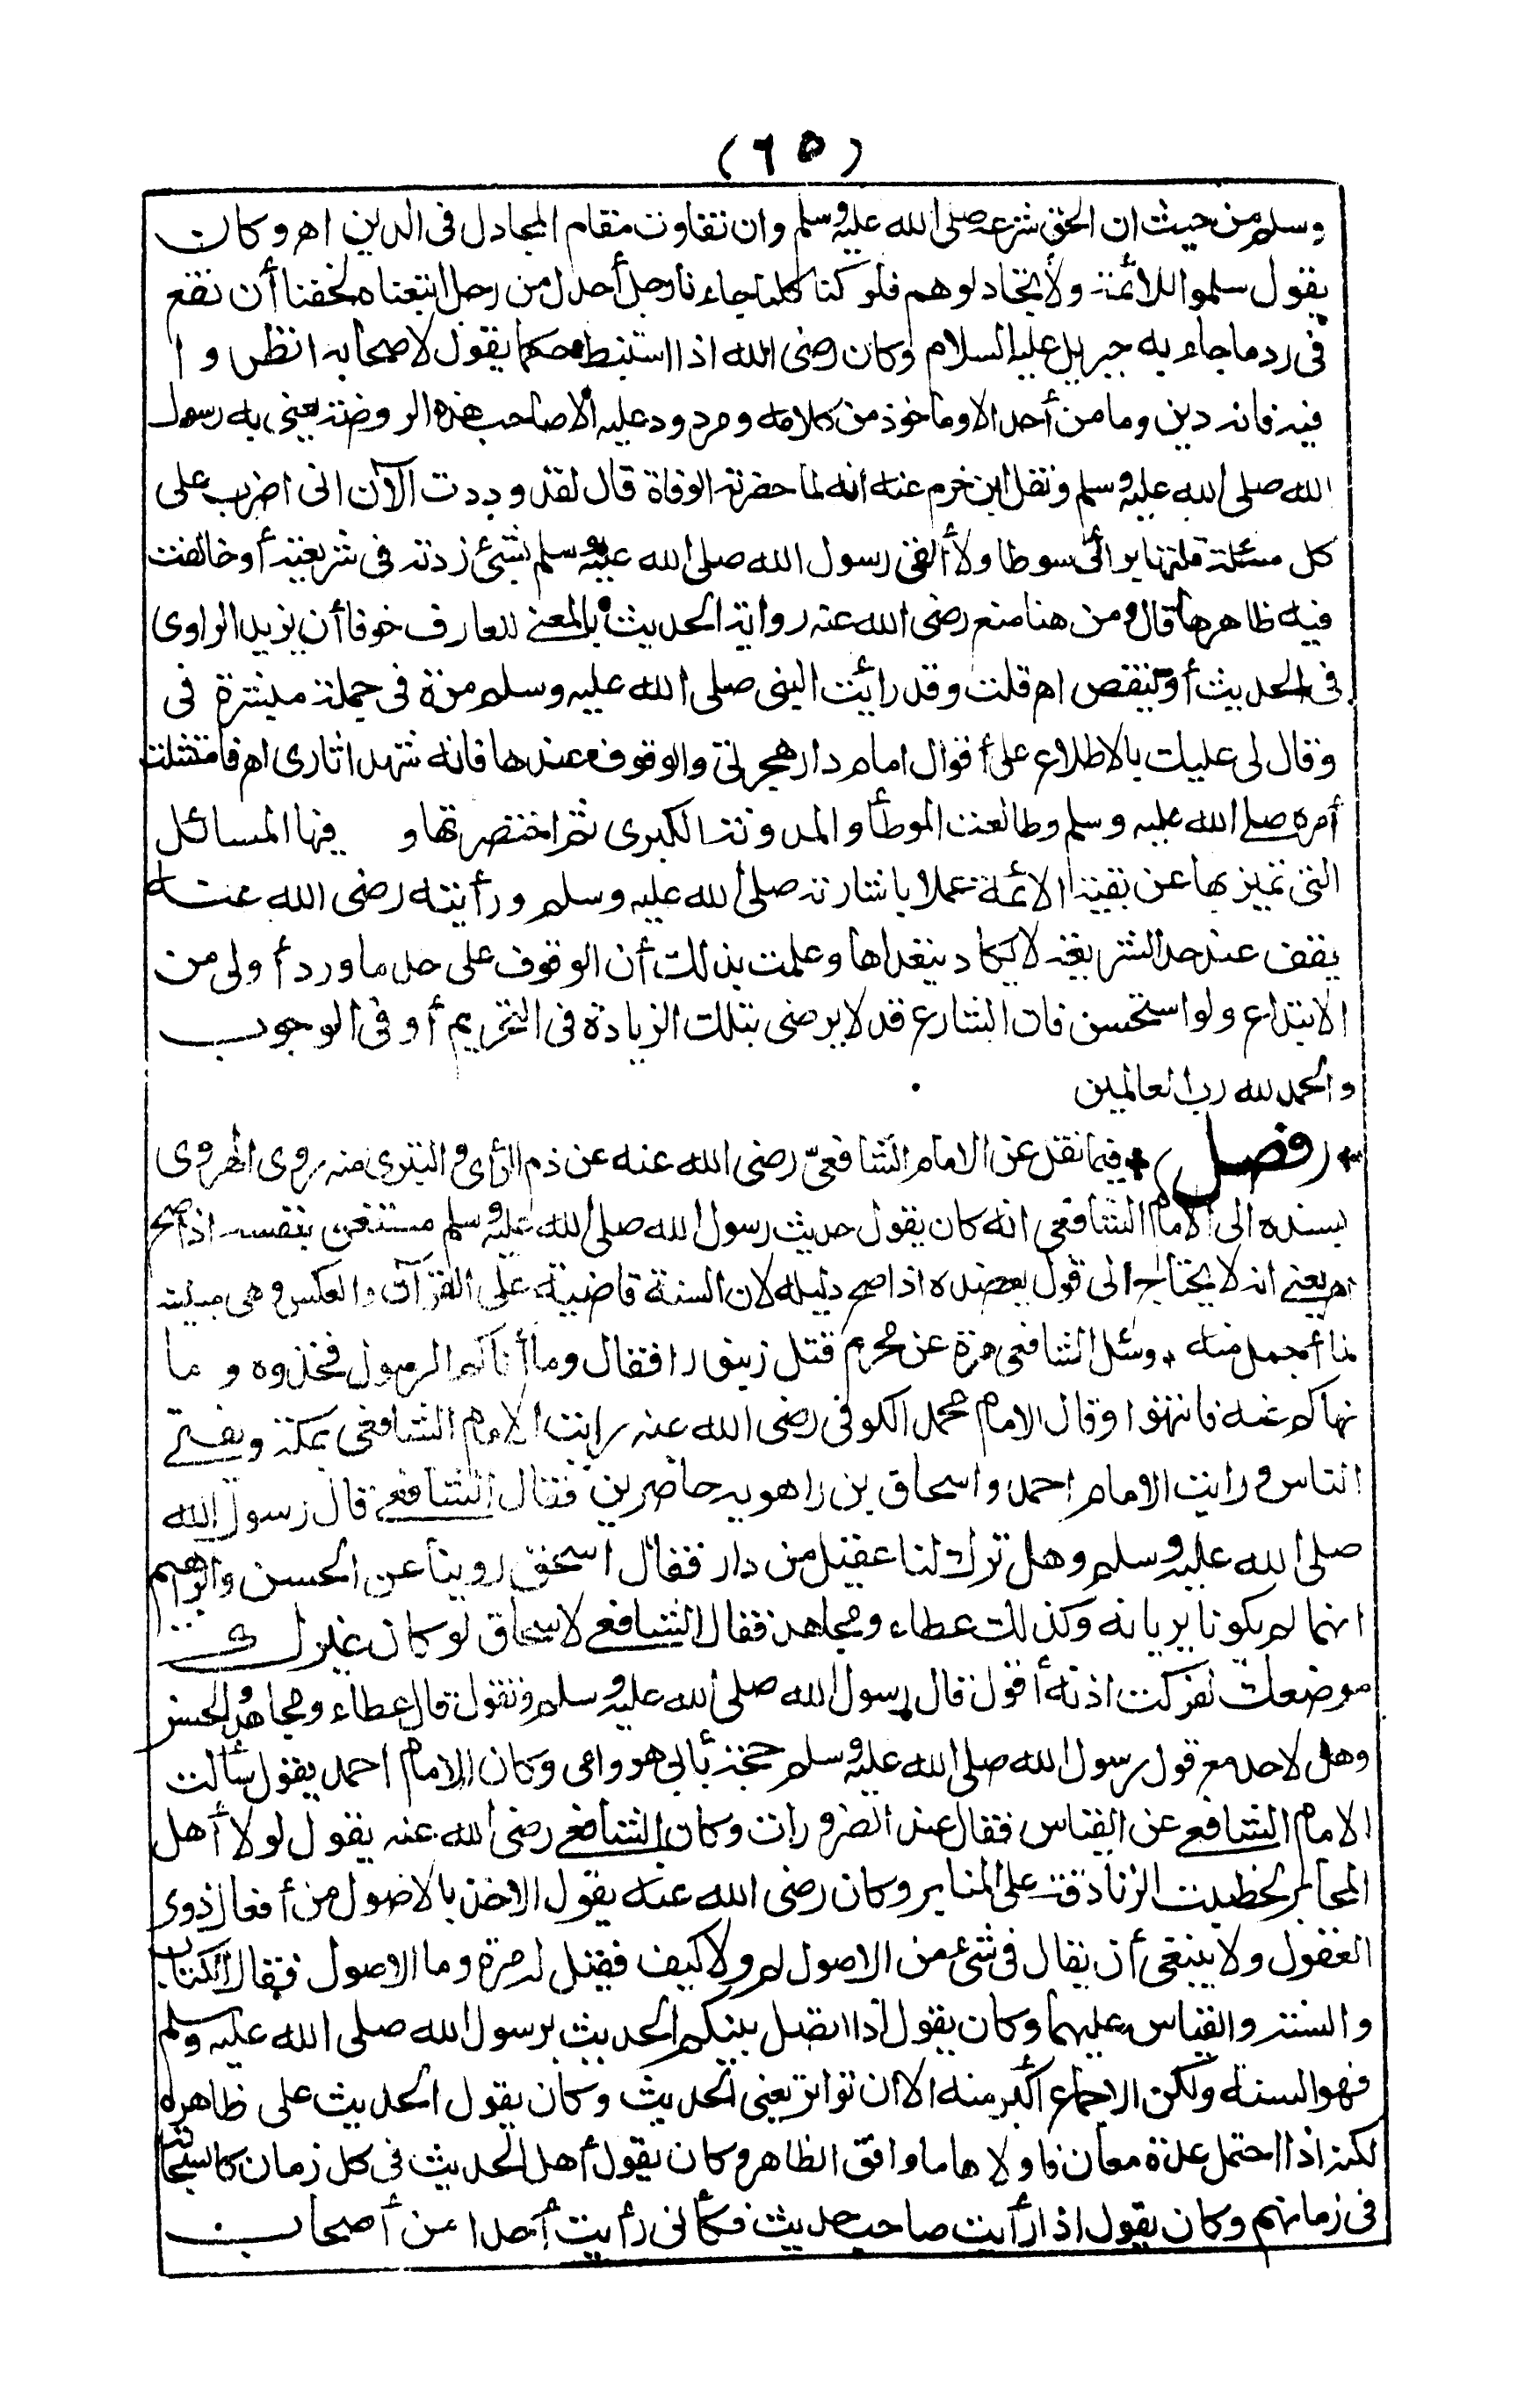 (٦٥)
وسلم من حيث ان الحق شرعه صلى الله عليه وسلم وان تفاوت مقام المجادل فى الدين اهـ وكان
يقول سلموا للائمة ولا تجادلوهم فلو كنا كلما جاءنا رجل أجدل من رجل اتبعناه لخفنا أن نقع
فى رد ما جاء به جبريل عليه السلام وكان رضى الله اذا استنبط حكما يقول لاصحابه انظروا
فيه فانه دين وما من أحد الا وماخوذ من كلامه ومردود عليه الا صاحب هذه الروضة يعنى به رسول
الله صلى الله عليه وسلم ونقل ابن حزم عنه انه لما حضرته الوفاة قال لقد وددت الآن انى اضرب على
كل مسئلة قلتها برائى سوطا ولا ألقى رسول الله صلى الله عليه وسلم بشئ زدته فى شريعته أو خالفت
فيه ظاهرها قال ومن هنا منع رضى الله عنه رواية الحديث بالمعنى للعارف خوفا أن يزيد الراوى
فى الحديث أو ينقص اهـ قلت وقد رائيت النبى صلى الله عليه وسلم مرة فى جملة مبشرة فى
وقال لى عليك بالاطلاع على أقوال امام دار هجرتى والوقوف عندها فانه شهد اثارى اهـ فامتثلت
أمره صلى الله عليه وسلم وطالعت الموطأ والمدونة الكبرى ثم اختصرتها و فيها المسائل
التى تميز بها عن بقية الائمة عملا باشارته صلى الله عليه وسلم ورأيته رضى الله عنه
يقف عند حد الشريعة لا يكاد يتعداها وعلمت بذلك أن الوقوف على حد ما ورد أولى من
الابتداع ولو استحسن فان الشارع قد لا يرضى بتلك الزيادة فى التحريم أو فى الوجوب
والحمد لله رب العالمين
(فصل) فيما نقل عن الامام الشافعى رضى الله عنه عن ذم الرأى والتبرى منه روى الهروى
بسنده الى الامام الشافعى انه كان يقول حديث رسول الله صلى الله عليه وسلم مستغن بنفسه اذا صح
اهـ يعنى انه لا يحتاج الى قول يعضده اذا صح دليله لان السنة قاضية على القرآن والعكس وهى مبينة
لما أجمل منه وسئل الشافعى مرة عن محرم قتل زنبورا فقال وما أتاكم الرسول فخذوه وما
نهاكم عنه فانتهوا وقال الامام محمد الكوفى رضى الله عنه رايت الامام الشافعى بمكة ويفتى
الناس ورايت الامام احمد واسحاق بن راهويه حاضرين فقال الشافعى قال رسول الله
صلى الله عليه وسلم وهل ترك لنا عقيل من دار فقال اسحق روينا عن الحسن وابراهيم
انهما لم يكونا يريانه وكذلك عطاء ومجاهد فقال الشافعى لاسحاق لو كان غيرك
موضعك لفركت اذنه أقول قال رسول الله صلى الله عليه وسلم وتقول قال عطاء ومجاهد والحسن
وهل لاحد مع قول رسول الله صلى الله عليه وسلم حجة بأبى هو وامى وكان الامام احمد يقول سألت
الامام الشافعى عن القياس فقال عند الضرورات وكان الشافعى رضى الله عنه يقول لولا أهل
المحابر لخطبت الزنادقة على المنابر وكان رضى الله عنه يقول الاخذ بالاصول من أفعال ذوى
العقول ولا ينبغى أن يقال فى شئ من الاصول لم ولا كيف فقيل له مرة وما الاصول فقال الكتاب
والسنة والقياس عليهما وكان يقول اذا اتصل بينكم الحديث برسول الله صلى الله عليه وسلم
فهو السنة ولكن الاجماع أكبر منه الا ان تواتر يعنى الحديث وكان يقول الحديث على ظاهره
لكنه اذا احتمل عدة معان فاولاها ما وافق الظاهر وكان يقول أهل الحديث فى كل زمان كالصحابة
فى زمانهم وكان يقول اذا رأيت صاحب حديث فكأنى رأيت أحدا من أصحاب